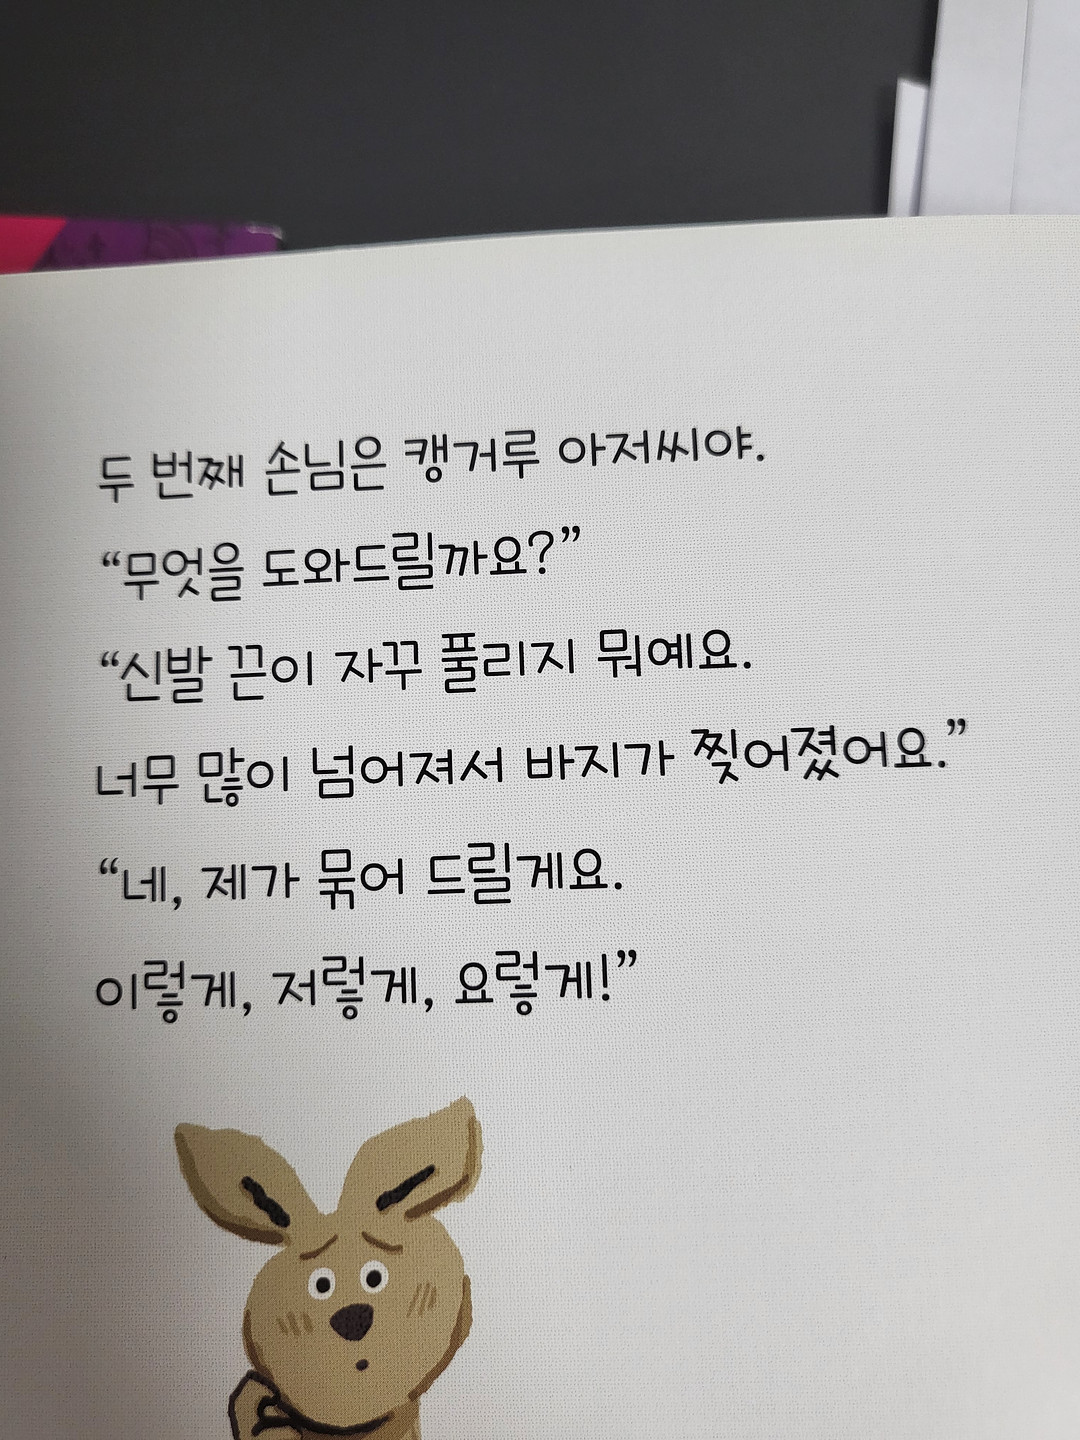 두 번째 손님은 캥거루 아저씨야.
“무엇을 도와드릴까요?”
“신발 끈이 자꾸 풀리지 뭐예요.
너무 많이 넘어져서 바지가 찢어졌어요.”
“네, 제가 묶어 드릴게요.
이렇게, 저렇게, 요렇게!”